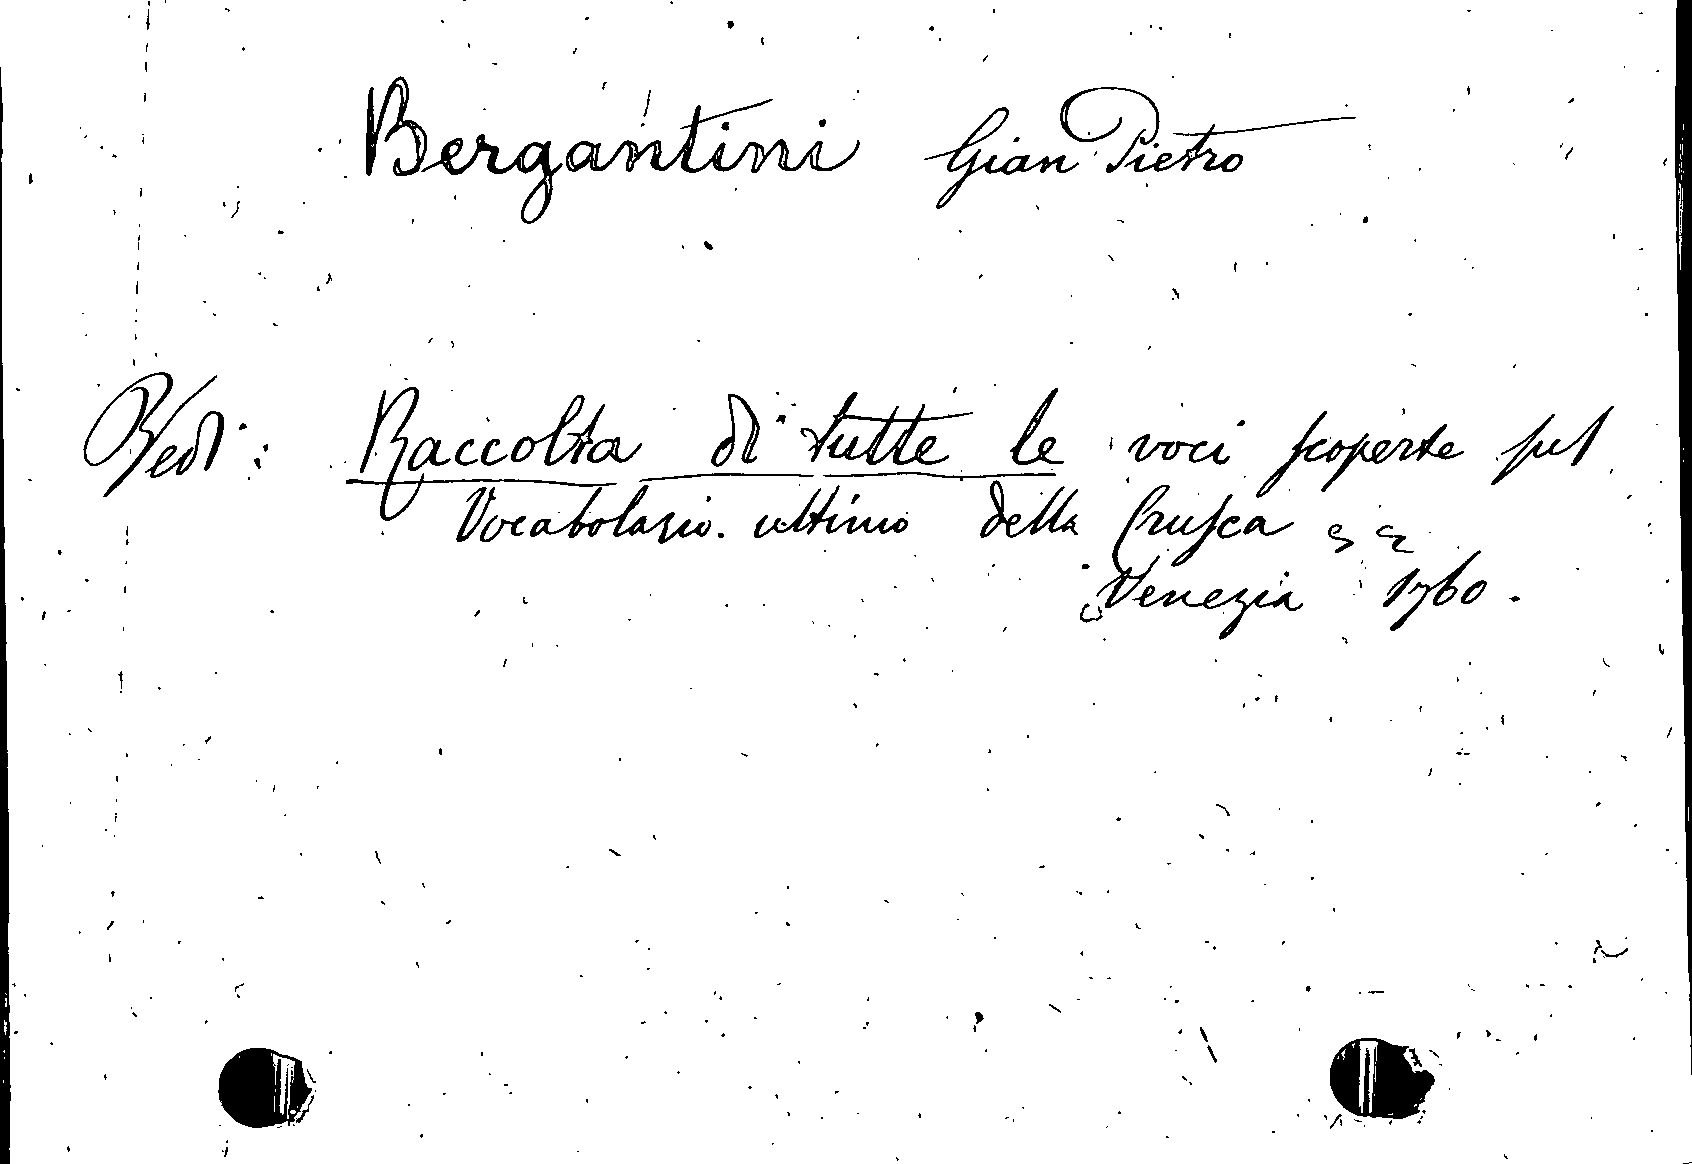 Bergantini Gian Pietro
Vedi: Raccolta di tutte le voci scoperte sul
Vocabolario ultimo della Crusca
Venezia 1760.